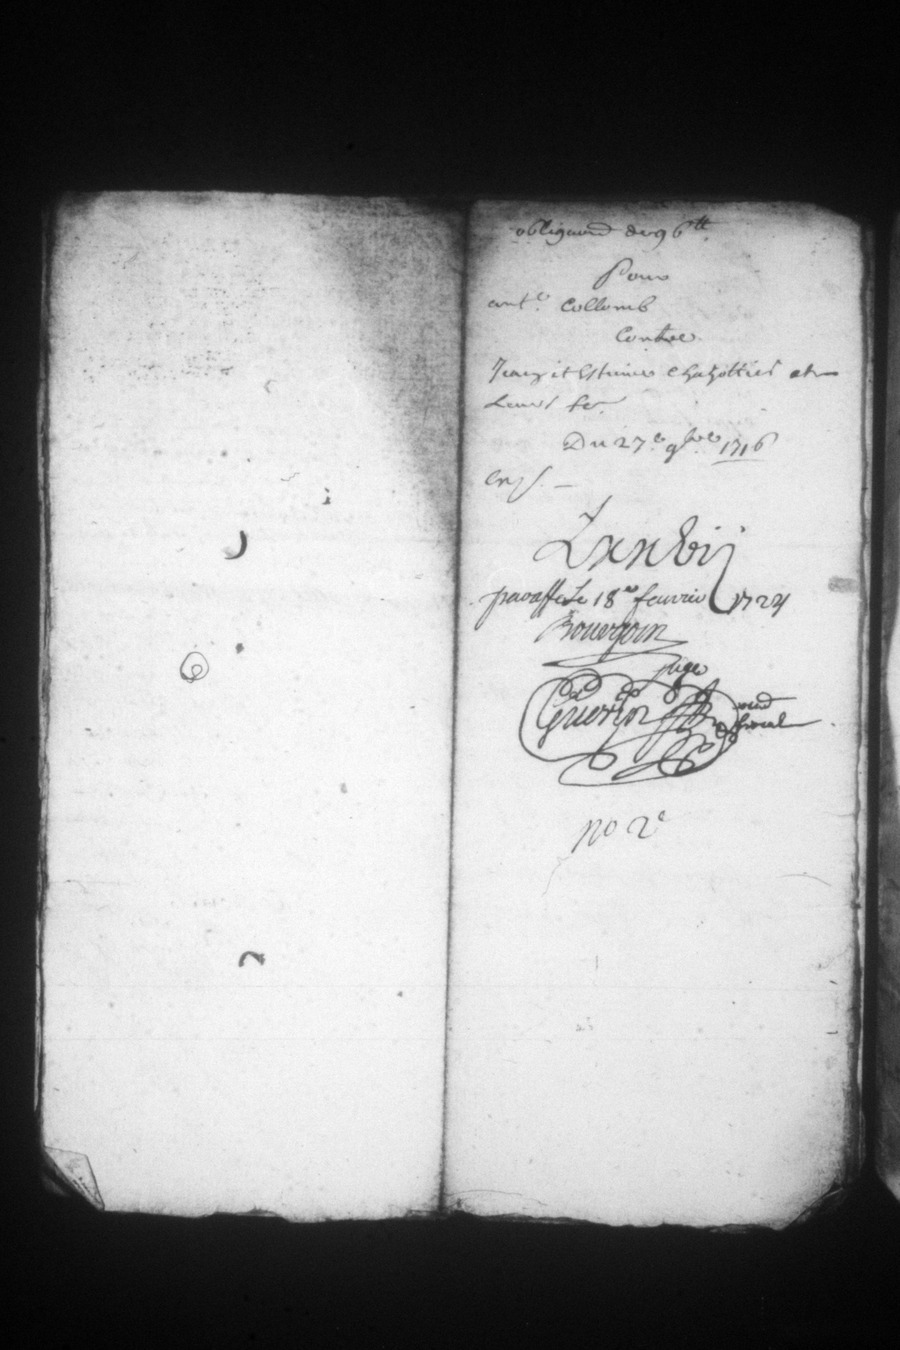 obligaond de 96 tt
Pour
ant.e Collomb
Contre
Jean et Estienne Chazottier et
Leurs fe
Du 27.e 9bre 1716
Lxxvbij
paraffe Le 18me feuvrier 1724
Bourgoin
juge
Guerin
fiscal
no 2e